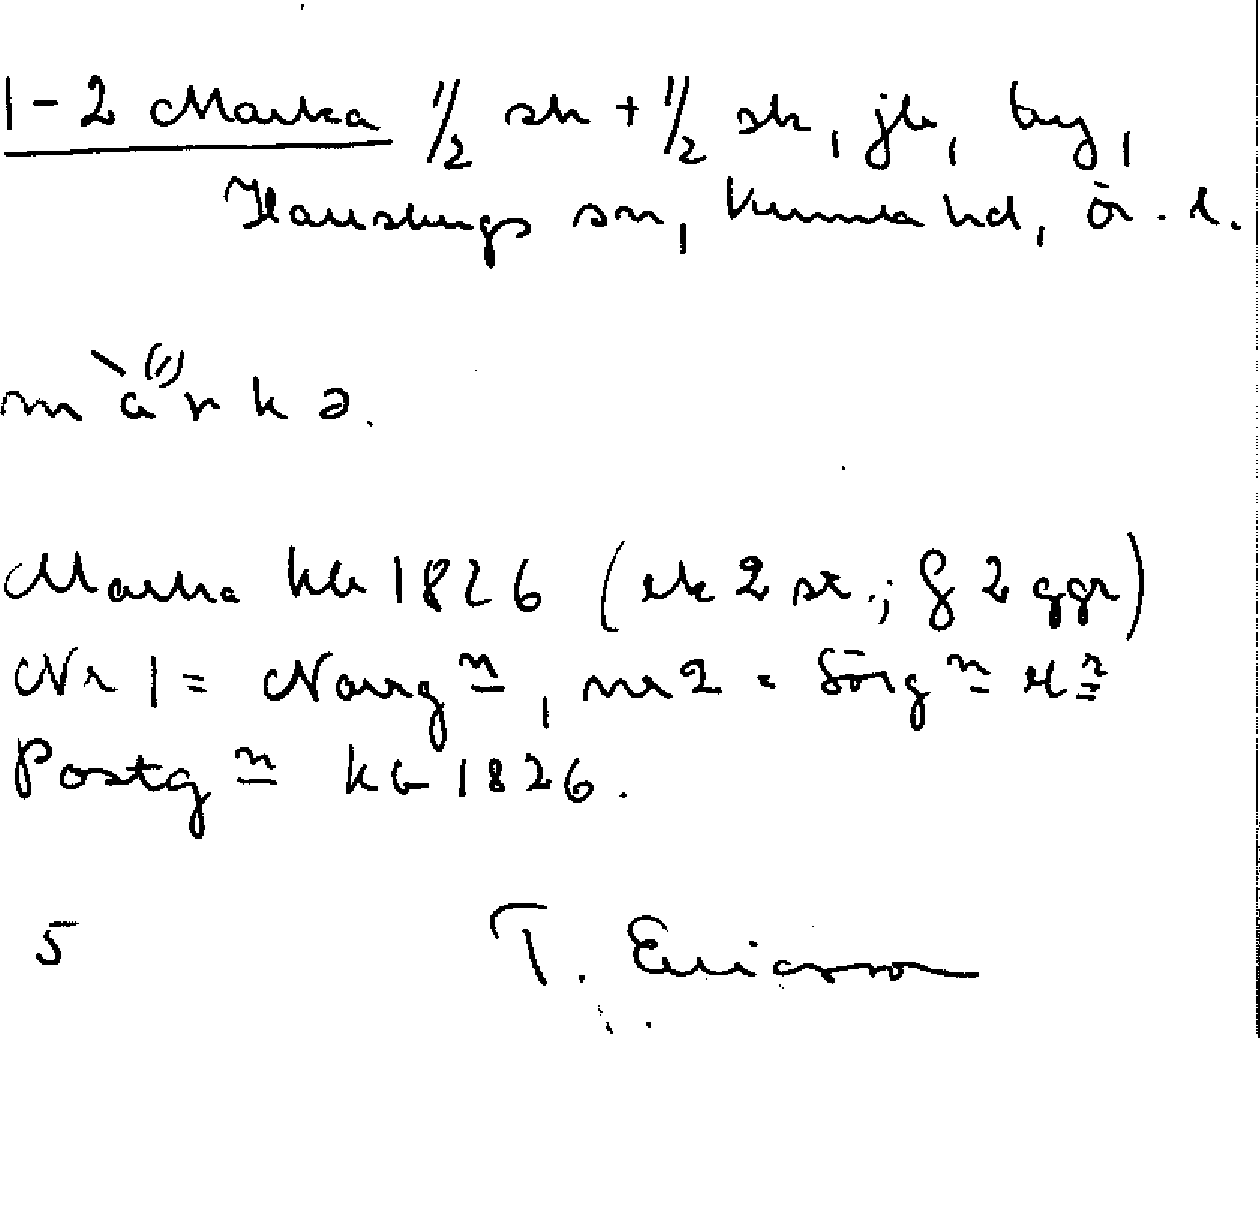 1-2 Marka 1/2 sk + 1/2 sk, jb, by,
Hallsbergs sn, Kumla hd, Ör. l.
màrkə.
Marka kb 1826 (ek 2 st.; g 2 ggr)
Nr 1 = Norrg n, nr 2 = Sörg n
Postg n kb 1826.
5 T. Ericsson